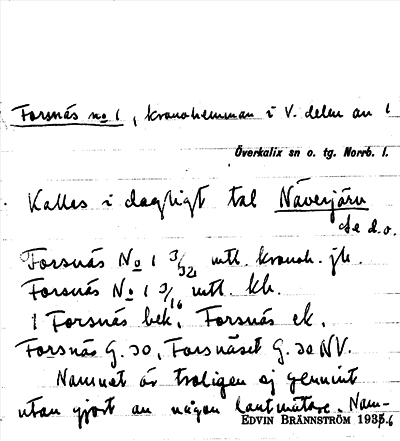 Forsnäs no 1, kronohemman i V. delen av
Överkalix sn o. tg. Norrb. l.
Kallas i dagligt tal Näverjärv
se d.o.
Forsnäs No 1 3/32 mtl. kronoh. jb.
Forsnäs No 1 3/16 mtl. kb.
1 Forsnäs bek. Forsnäs ek.
Forsnäs G. 30, Forsnäset G. 30 NV.
Namnet är troligen ej genuint
utan gjort av någon lantmätare. Nam-
EDVIN BRÄNNSTRÖM 1935.